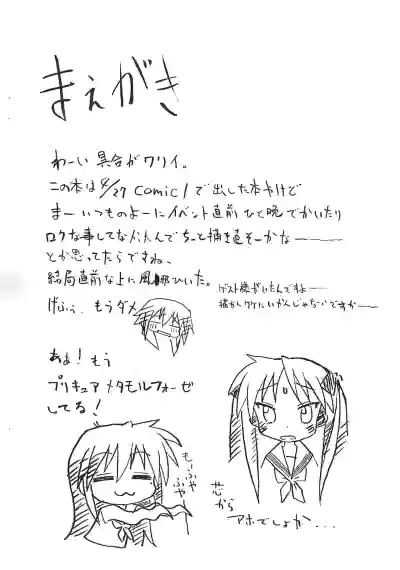 まえがき
わーい 具合がワリィ。
この本は4/27 comic1で出した本やけど
まーいつものよーにイベント直前ひと晩でかいたり
ロクな事してなかったんでちっと描き直そーかな———
とか思ってたらですね、
結局直前な上に風邪ひいた。
げふぅ。もうダメ
ゲスト様がいたんですよ——
描かんワケにいかんじゃないですか——
ああ！もう
プリキュアメタモルフォーゼ
してる！
もーふや
ふやー
芯から
アホでしょか...